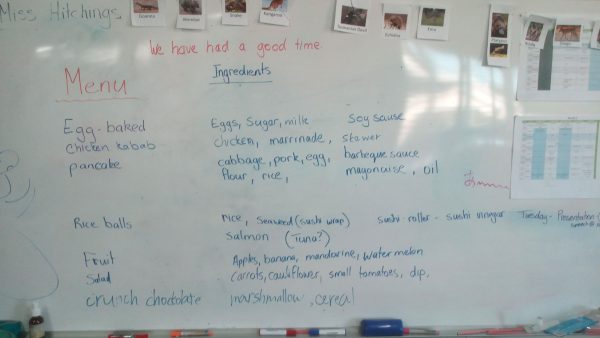 Miss Hitchings
Goanna
Wombat
Snake
Kangaroo
Tasmanian Devil
Echidna
Emu
We have had a good time.
Menu
Ingredients
Egg-baked
Eggs, Sugar, milk
Soy sause
chicken kabab
chicken, marrinade, skewer
pancake
cabbage, pork, egg,
barbeque sauce
flour, rice,
mayonaise, oil
Rice balls
rice, seaweed (sushi wrap)
sushi-roller - sushi vinegar
Tuesday - Presentation
Salmon (Tuna?)
Fruit
Apples, banana, mandarine, watermelon
Salad
Carrots, cauliflower, small tomatoes, dip,
crunch choctolate
marshmallow, cereal